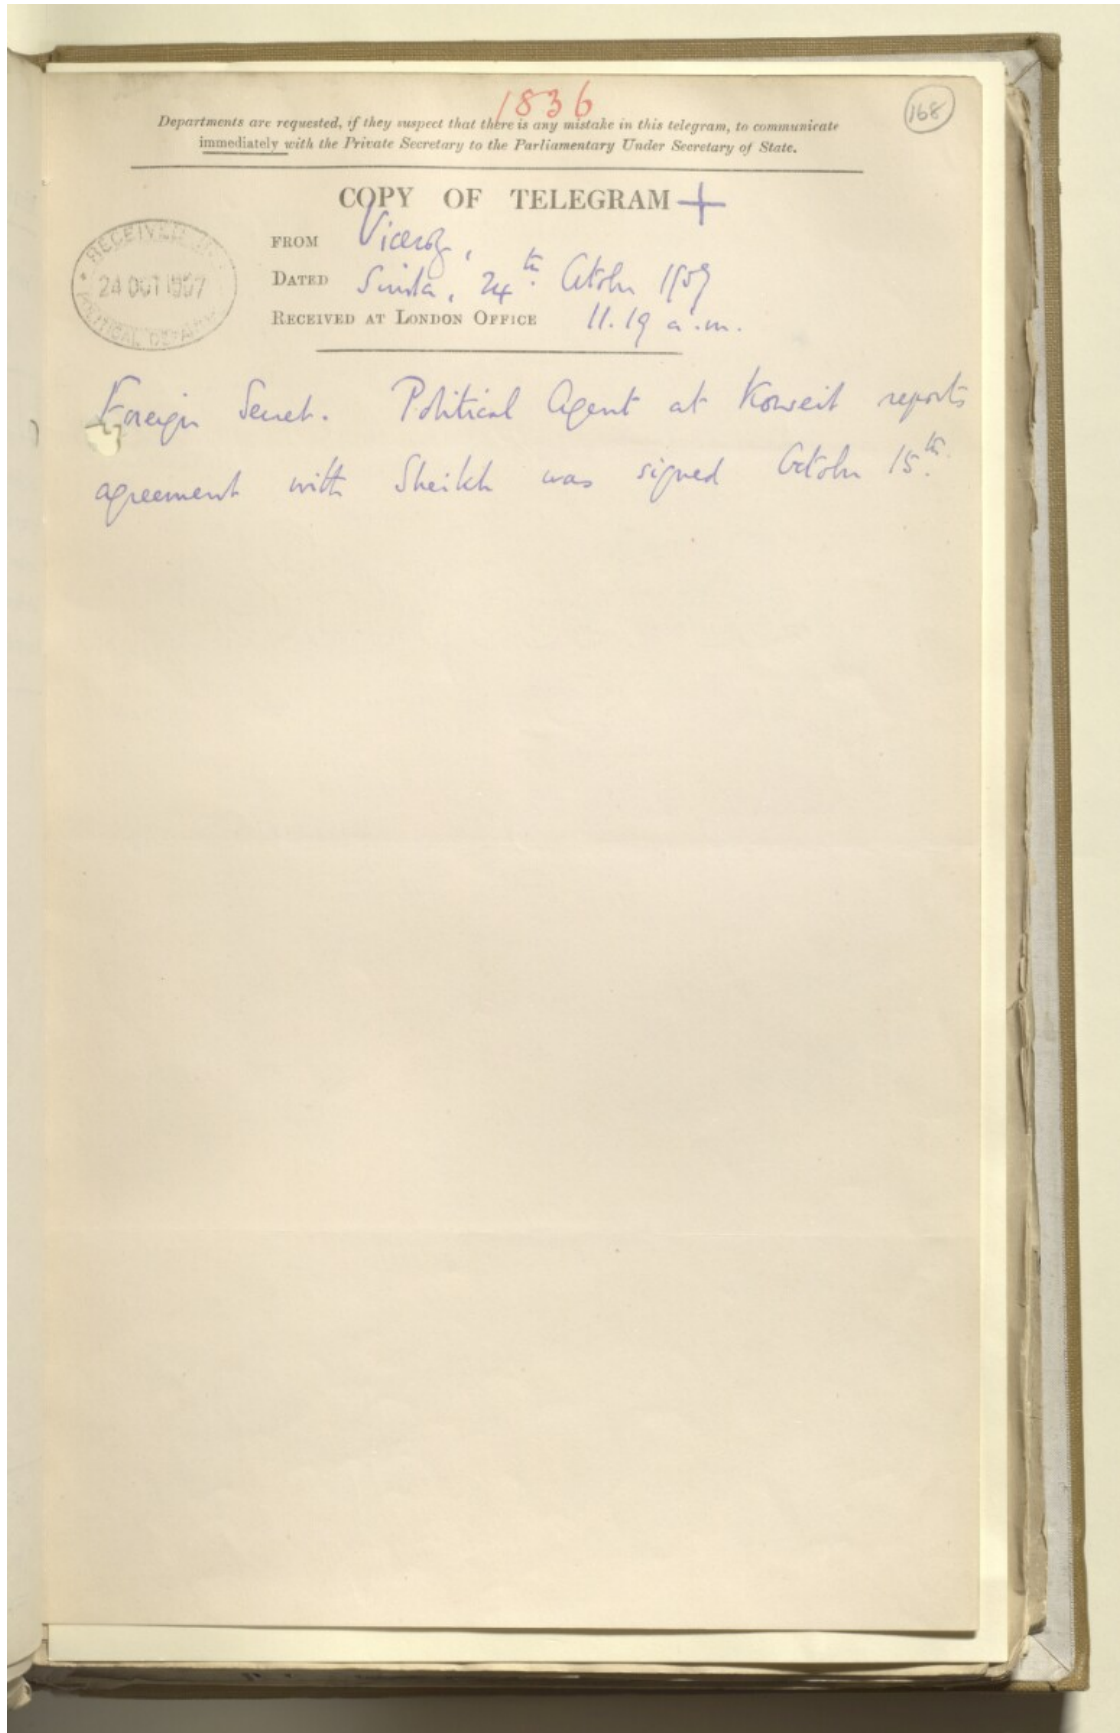 1836
168
Departments are requested, if they suspect that there is any mistake in this telegram, to communicate
immediately with the Private Secretary to the Parliamentary Under Secretary of State.
COPY OF TELEGRAM +
RECEIVED
24 OCT 1907
POLITICAL DEPART
FROM Viceroy,
DATED Simla, 24th October 1907
RECEIVED AT LONDON OFFICE 11.19 a.m.
Foreign Secret. Political Agent at Koweit reports
agreement with Sheikh was signed October 15th.